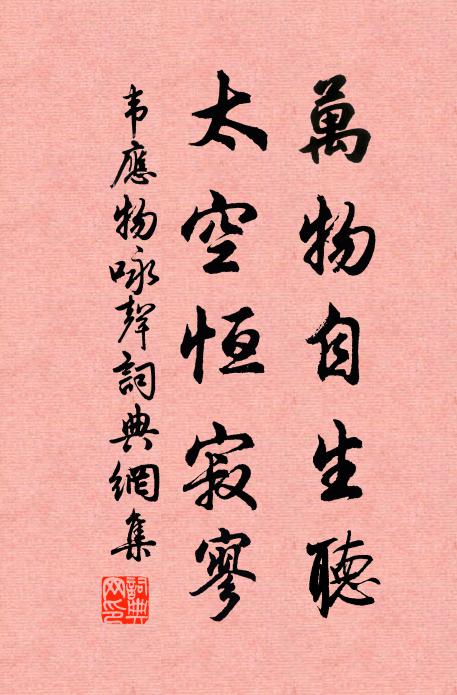 萬物自生聽
太空恒寂寥
韦應物咏聲詞典網集
詞典網印